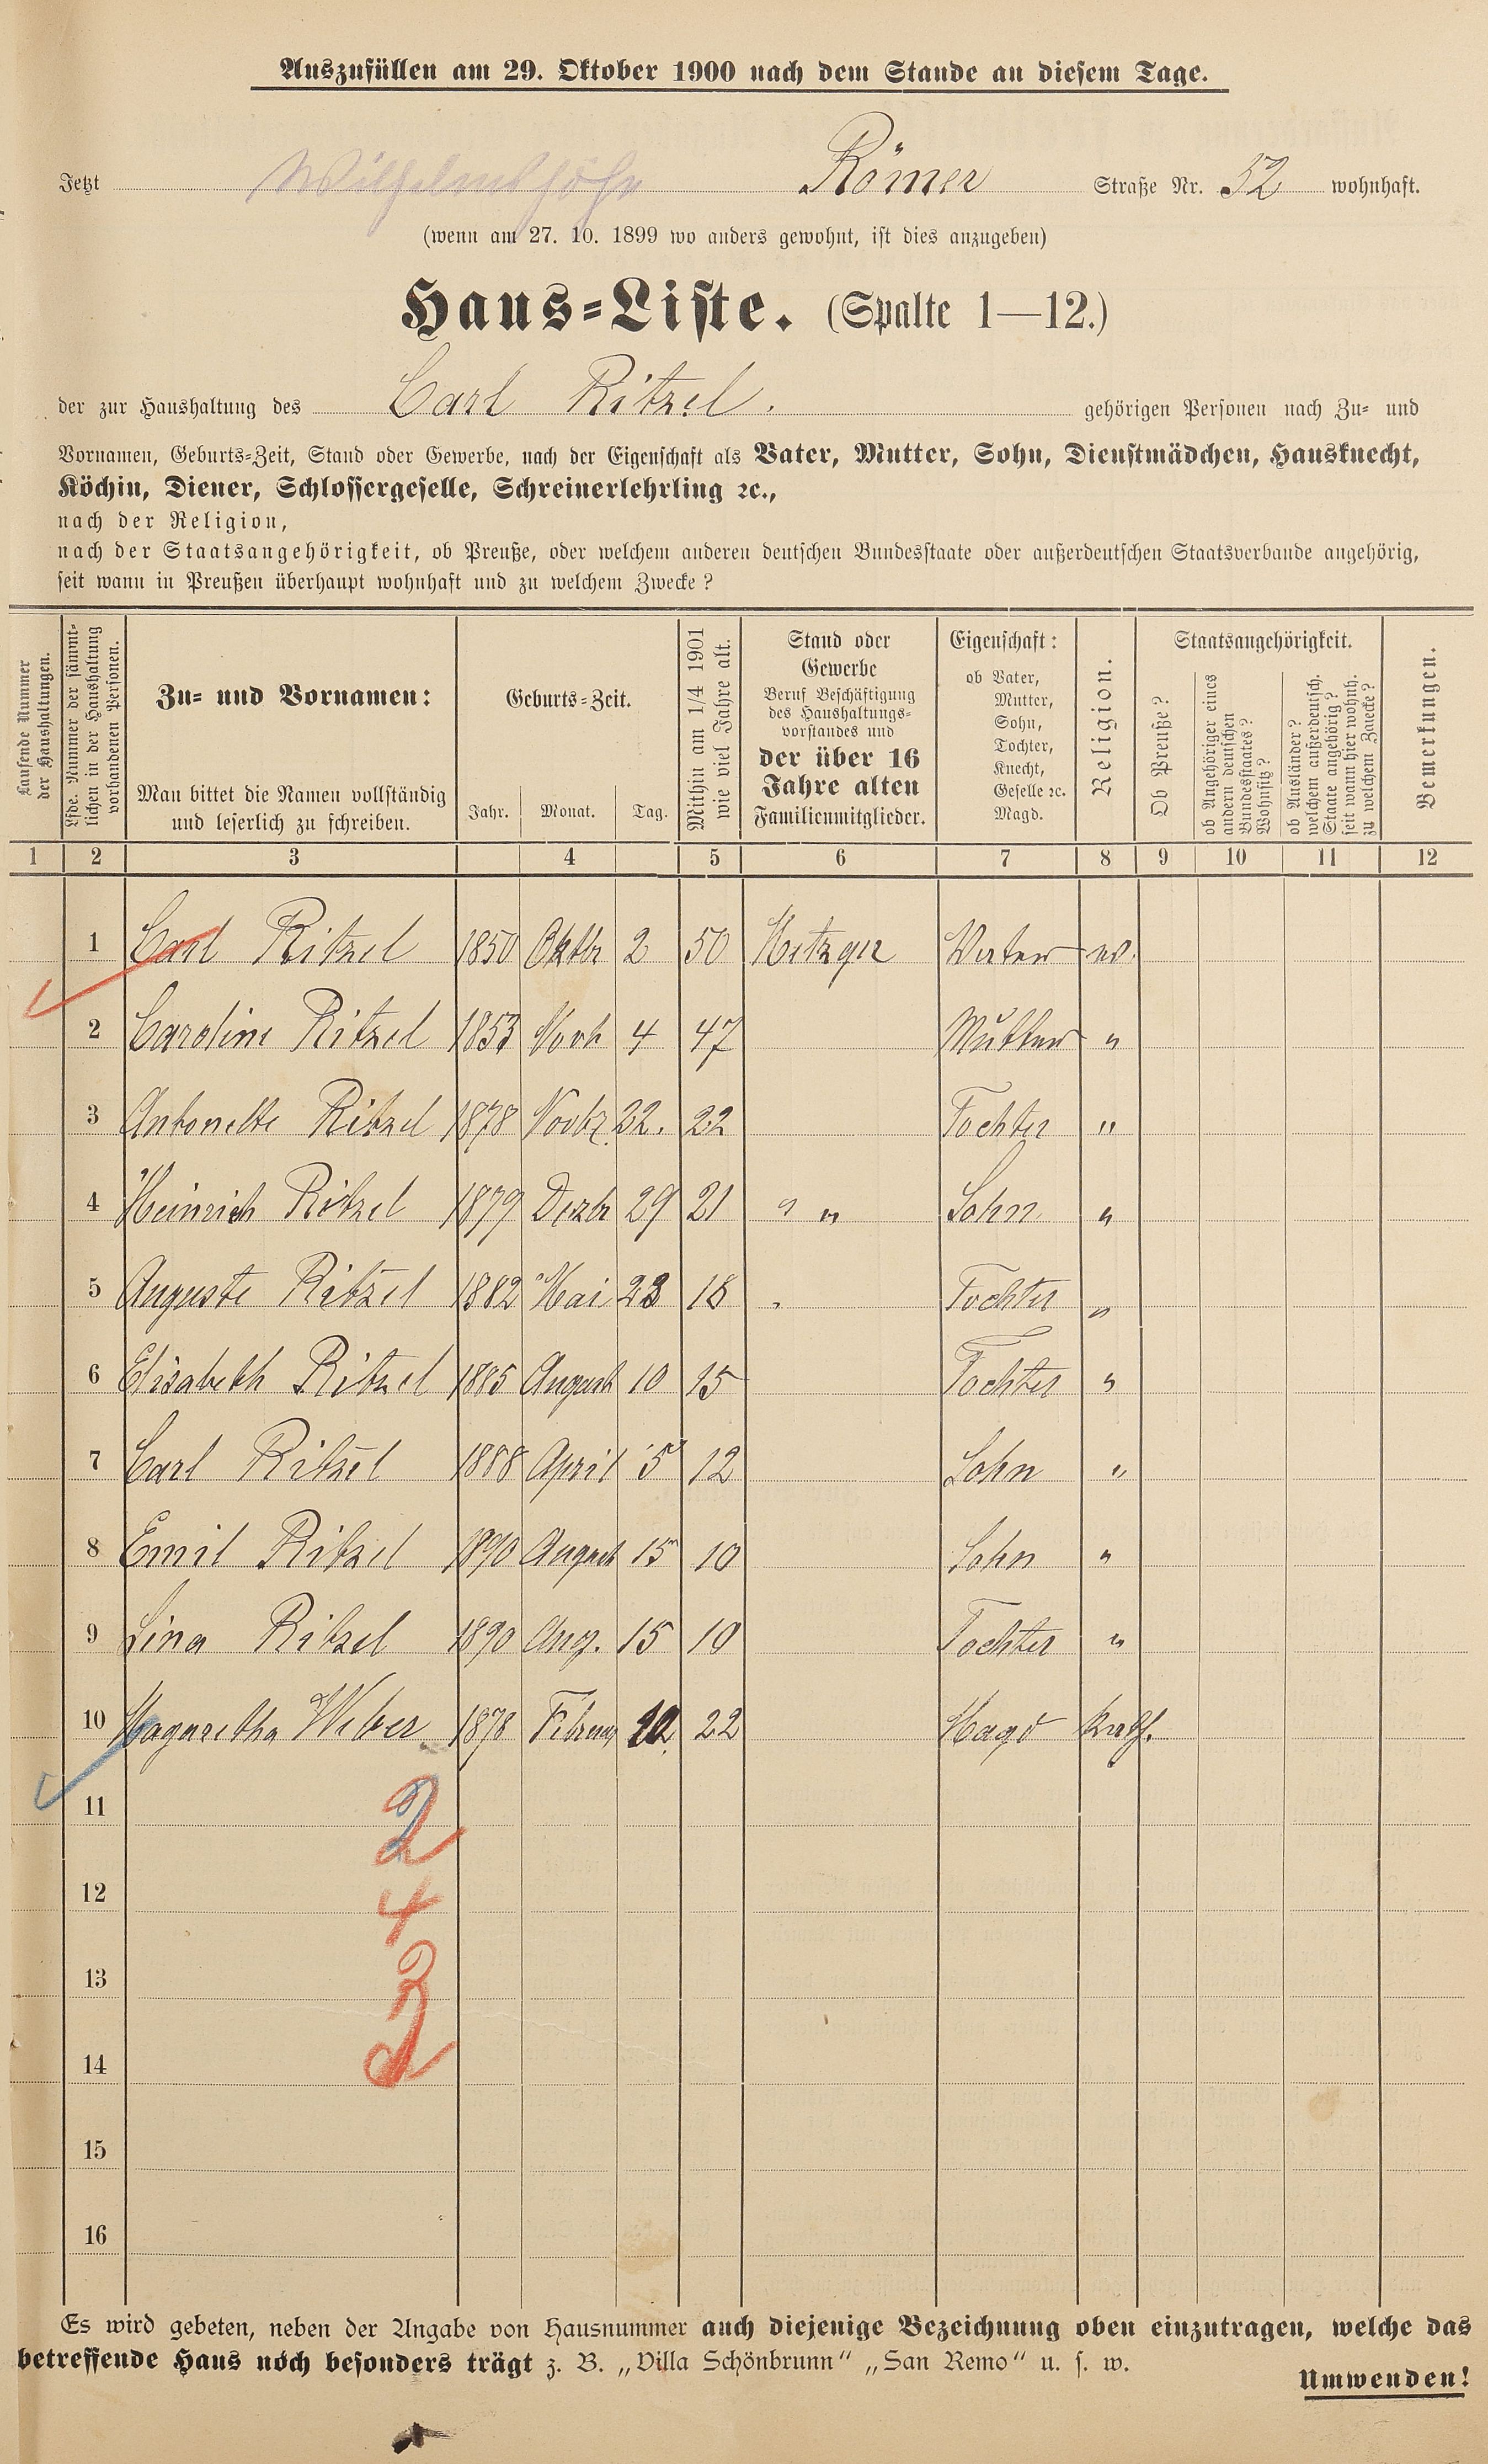 Auszufüllen am 29. Oktober 1900 nach dem Stande an diesem Tage.
Jetzt Wilhelmshöhe Römer Straße Nr. 52 wohnhaft.
(wenn am 27. 10. 1899 wo anders gewohnt, ist dies anzugeben)
Haus-Liste. (Spalte 1—12.)
der zur Haushaltung des Carl Ritzel. gehörigen Personen nach Zu- und
Vornamen, Geburts-Zeit, Stand oder Gewerbe, nach der Eigenschaft als Vater, Mutter, Sohn, Dienstmädchen, Hausknecht,
Köchin, Diener, Schlossergeselle, Schreinerlehrling ꝛc.,
nach der Religion,
nach der Staatsangehörigkeit, ob Preuße, oder welchem anderen deutschen Bundesstaate oder außerdeutschen Staatsverbande angehörig,
seit wann in Preußen überhaupt wohnhaft und zu welchem Zwecke?
Laufende Nummer
der Haushaltungen.
Lfde. Nummer der sämmt-
lichen in der Haushaltung
vorhandenen Personen.
Zu- und Vornamen:
Man bittet die Namen vollständig
und leserlich zu schreiben.
Geburts-Zeit.
Jahr. Monat. Tag.
Mithin am 1/4 1901
wie viel Jahre alt.
Stand oder
Gewerbe
Beruf Beschäftigung
des Haushaltungs-
vorstandes und
der über 16
Jahre alten
Familienmitglieder.
Eigenschaft:
ob Vater,
Mutter,
Sohn,
Tochter,
Knecht,
Geselle ꝛc.
Magd.
Religion.
Staatsangehörigkeit.
Ob Preuße?
ob Angehöriger eines
andern deutschen
Bundesstaates?
Wohnsitz?
ob Ausländer?
welchem außerdeutsch.
Staate angehörig?
seit wann hier wohnh.
zu welchem Zwecke?
Bemerkungen.
1 2 3 4 5 6 7 8 9 10 11 12
1 Carl Ritzel 1850 Oktbr 2 50 Metzger Vater ev.
2 Caroline Ritzel 1853 4 47 Mutter "
3 Antonette Ritzel 1878 Novbr. 22. 22 Tochter "
4 Heinrich Ritzel 1879 Dezbr 29 21 " " Sohn "
5 Auguste Ritzel 1882 Mai 23 18 Tochter "
6 Elisabeth Ritzel 1885 August 10 15 Tochter "
7 Carl Ritzel 1888 April 5 12 Sohn "
8 Emil Ritzel 1890 August 15 10 Sohn "
9 Lina Ritzel 1890 Aug. 15 10 Tochter "
10 Magaretha Weber 1878 Februar 22 Magd kath.
11 2
12 4
13
14
15
16
Es wird gebeten, neben der Angabe von Hausnummer auch diejenige Bezeichnung oben einzutragen, welche das
betreffende Haus noch besonders trägt z. B. „Villa Schönbrunn“ „San Remo“ u. s. w.
Umwenden!